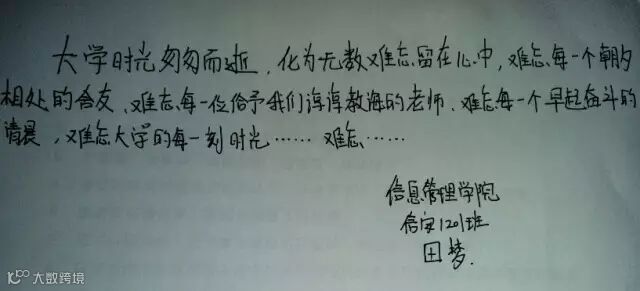 大学时光匆匆而逝，化为无数难忘留在心中，难忘每一个朝夕
相处的舍友、难忘每一位给予我们谆谆教诲的老师、难忘每一个早起奋斗的
清晨，难忘大学的每一刻时光……难忘……
信息管理学院
信安1201班
田梦.
大数跨境